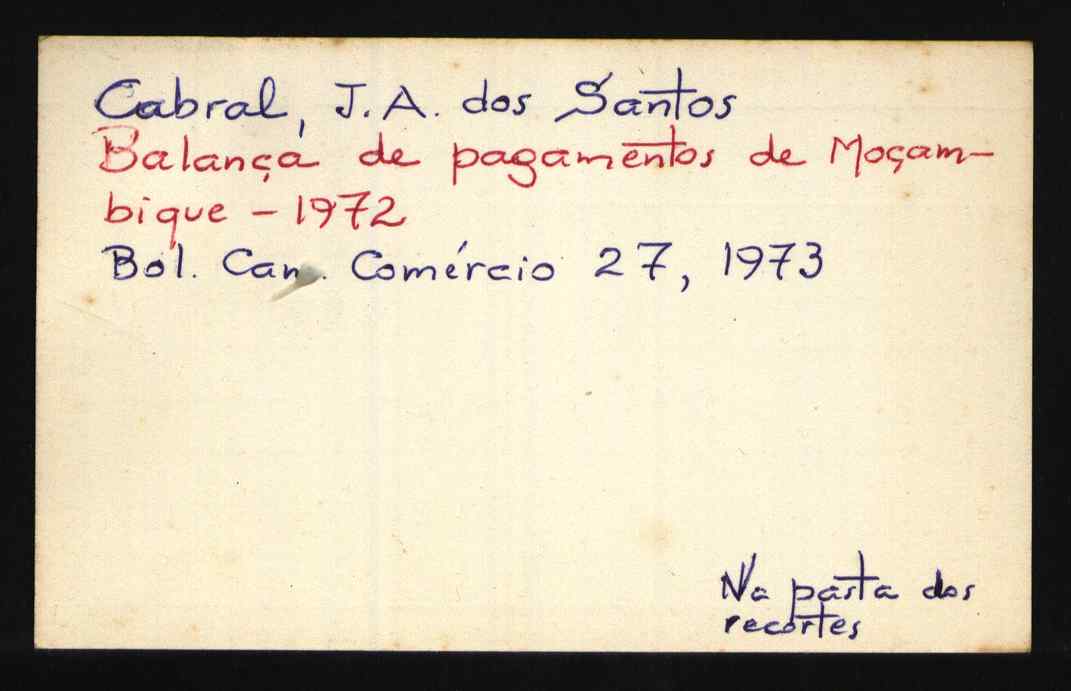 Cabral, J.A. dos Santos
Balança de pagamentos de Moçam-
bique - 1972
Bol. Cam. Comércio 27, 1973
Na pasta dos
recortes